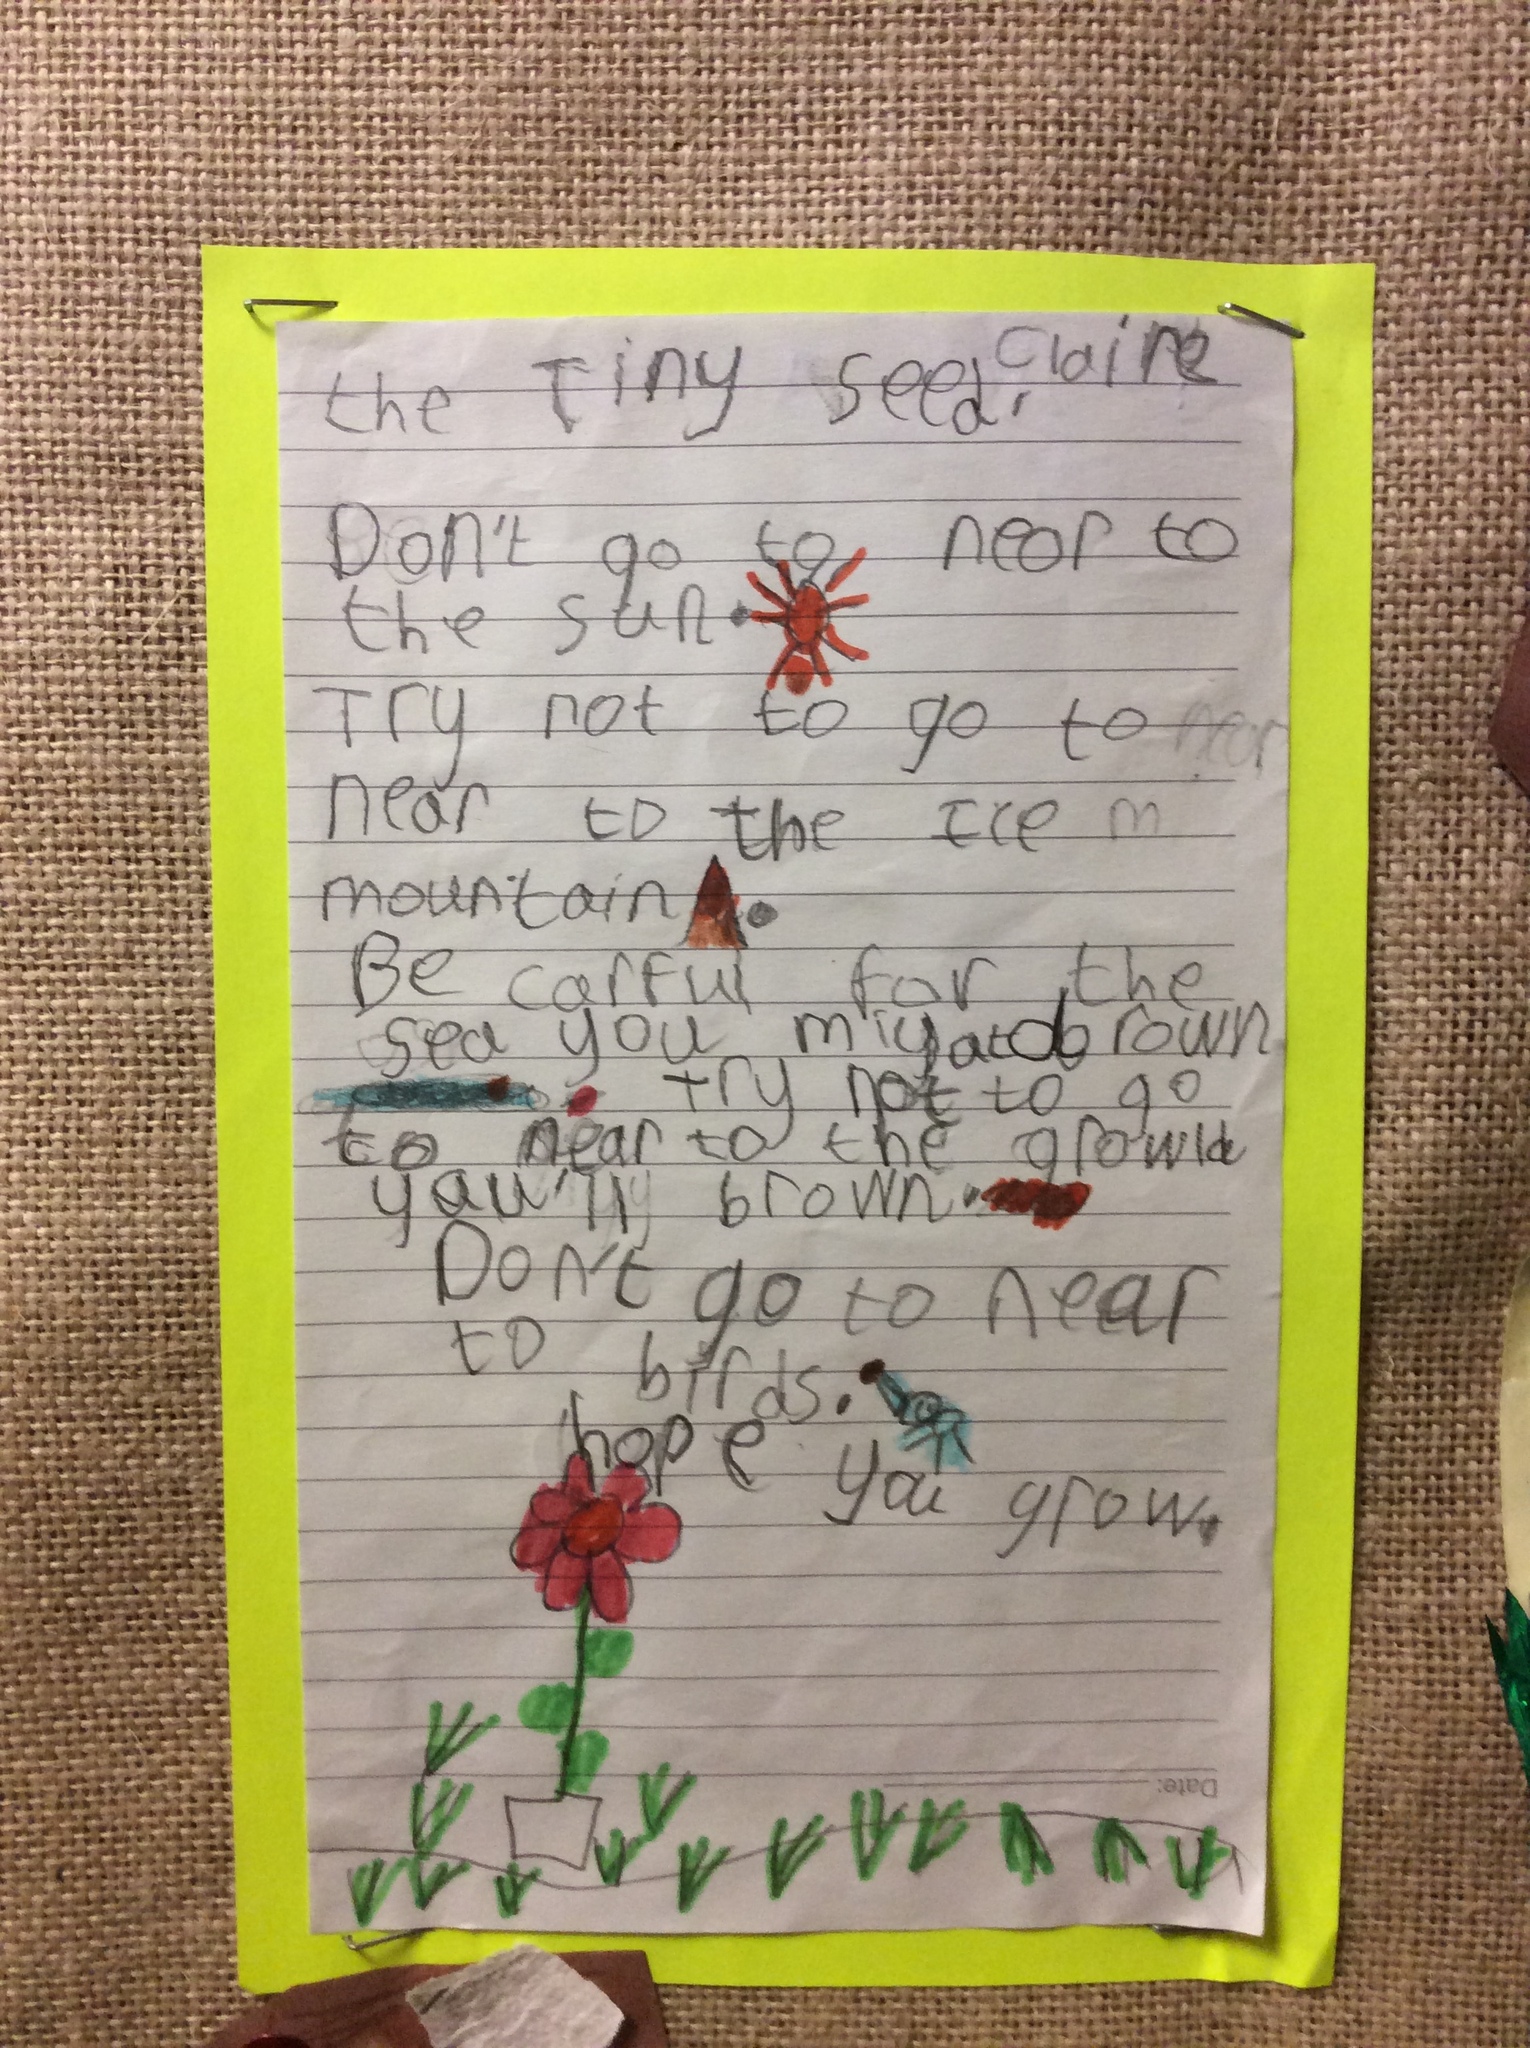 the Tiny seed, Claire
Don't go to near to
the sun.
Try not to go to near
near to the Ice m
mountain.
Be carful for the
sea you miy brown
. try not to go
to near to the
you'll brown.
Don't go to near
to birds.
hope you grow.
Date: